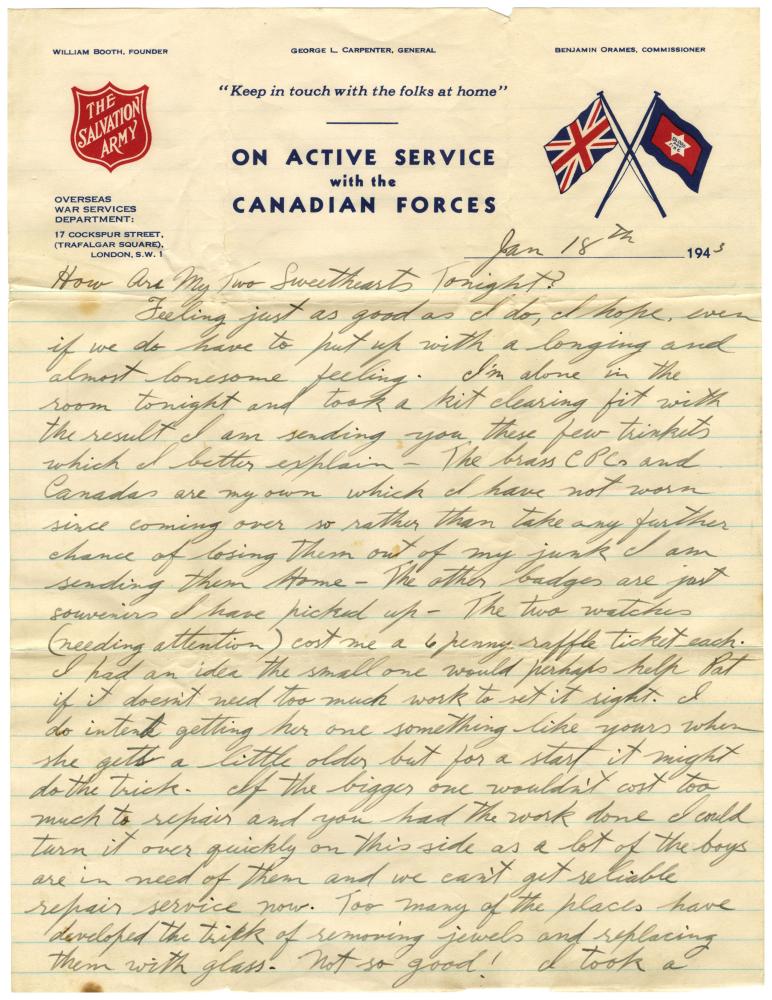 WILLIAM BOOTH, FOUNDER
GEORGE L. CARPENTER, GENERAL
BENJAMIN ORAMES, COMMISSIONER
THE
SALVATION
ARMY
"Keep in touch with the folks at home"
ON ACTIVE SERVICE
with the
CANADIAN FORCES
OVERSEAS
WAR SERVICES
DEPARTMENT:
17 COCKSPUR STREET,
(TRAFALGAR SQUARE),
LONDON, S.W. 1
Jan 18th 1943
How Are My Two Sweethearts Tonight?
Feeling just as good as I do, I hope, even
if we do have to put up with a longing and
almost lonesome feeling. I'm alone in the
room tonight and took a kit clearing fit with
the result I am sending you these few trinkets
which I better explain – The brass CPCs and
Canadas are my own which I have not worn
since coming over so rather than take any further
chance of losing them out of my junk I am
sending them Home – The other badges are just
souvenirs I have picked up – The two watches
(needing attention) cost me a 6 penny raffle ticket each.
I had an idea the small one would perhaps help Pat
if it doesn't need too much work to set it right. I
do intend getting her one something like yours when
she gets a little older but for a start it might
do the trick. If the bigger one wouldn't cost too
much to repair and you had the work done I could
turn it over quickly on this side as a lot of the boys
are in need of them and we can't get reliable
repair service now. Too many of the places have
developed the trick of removing jewels and replacing
them with glass. Not so good! I took a